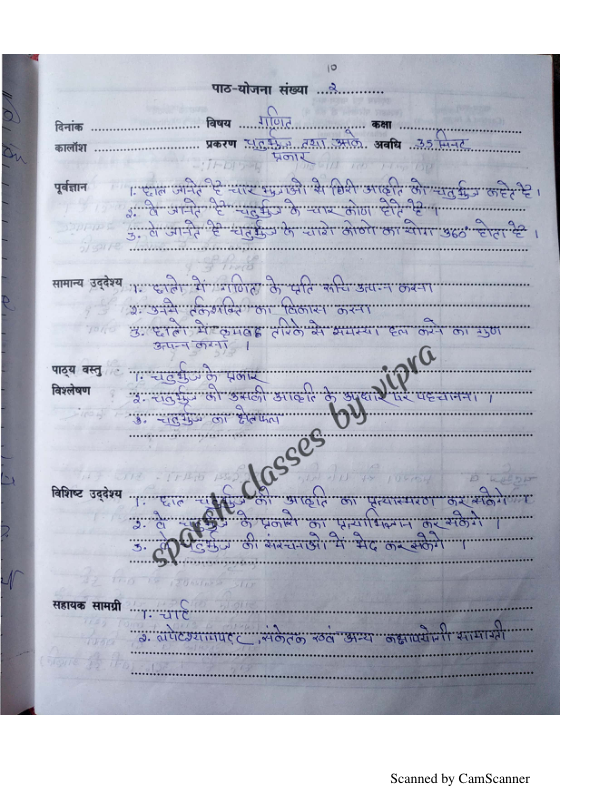 10
पाठ-योजना संख्या ...२............
दिनांक ........................ विषय ...गणित............ कक्षा ........................
कालाँश ........................ प्रकरण चतुर्भुज तथा उसके अवधि ..35 मिनट
प्रकार
पूर्वज्ञान 1. छात्र जानते है चार भुजाओ से घिरी आकृति को चतुर्भुज कहते है।
2. वे जानते है चतुर्भुज के चार कोण होते है।
3. वे जानते है चतुर्भुज के चारो कोणो का योग 360° होता है।
सामान्य उद्देश्य 1. छात्रो मे गणित के प्रति रूचि उत्पन्न करना
2. उनमे र्तकशक्ति का विकास करना
3. छात्रो मे क्रमबद्ध तरिके से समस्या हल करने का गुण
उत्पन्न करना ।
पाठ्य वस्तु 1. चतुर्भुज के प्रकार
विश्लेषण 2. चतुर्भुज को उसकी आकृति के आधार पर पहचानना।
3. चतुर्भुज का क्षेत्रफल
विशिष्ट उद्देश्य 1. छात्र चतुर्भुज की आकृति का प्रत्यास्मरण कर सकेगे ।
2. वे चतुर्भुज के प्रकारो का प्रत्याभिज्ञान कर सकेगे ।
3. वे चतुर्भुज की संरचनाओ मे भेद कर सकेगे ।
सहायक सामग्री 1. चार्ट
2. लपेटश्यामपट्ट, संकेतक एवं अन्य कक्षापयोगी सामाग्री
sparsh classes by vipra
Scanned by CamScanner